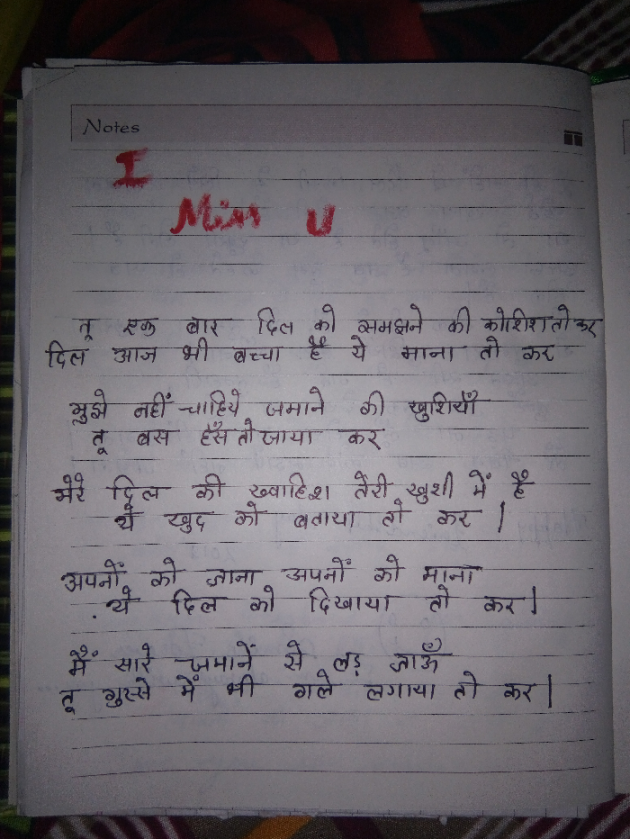 Notes
I
Miss U
तू एक बार दिल को समझने की कोशिश तो कर
दिल आज भी बच्चा है ये माना तो कर
मुझे नहीं चाहिये जमाने की खुशियाँ
तू बस हँस तो जाया कर
मेरे दिल की ख्वाहिश तेरी खुशी में है
ये खुद को बताया तो कर |
अपनों को जाना अपनों को माना
ये दिल को दिखाया तो कर |
मैं सारे जमानें से लड़ जाऊँ
तू गुस्से में भी गले लगाया तो कर |